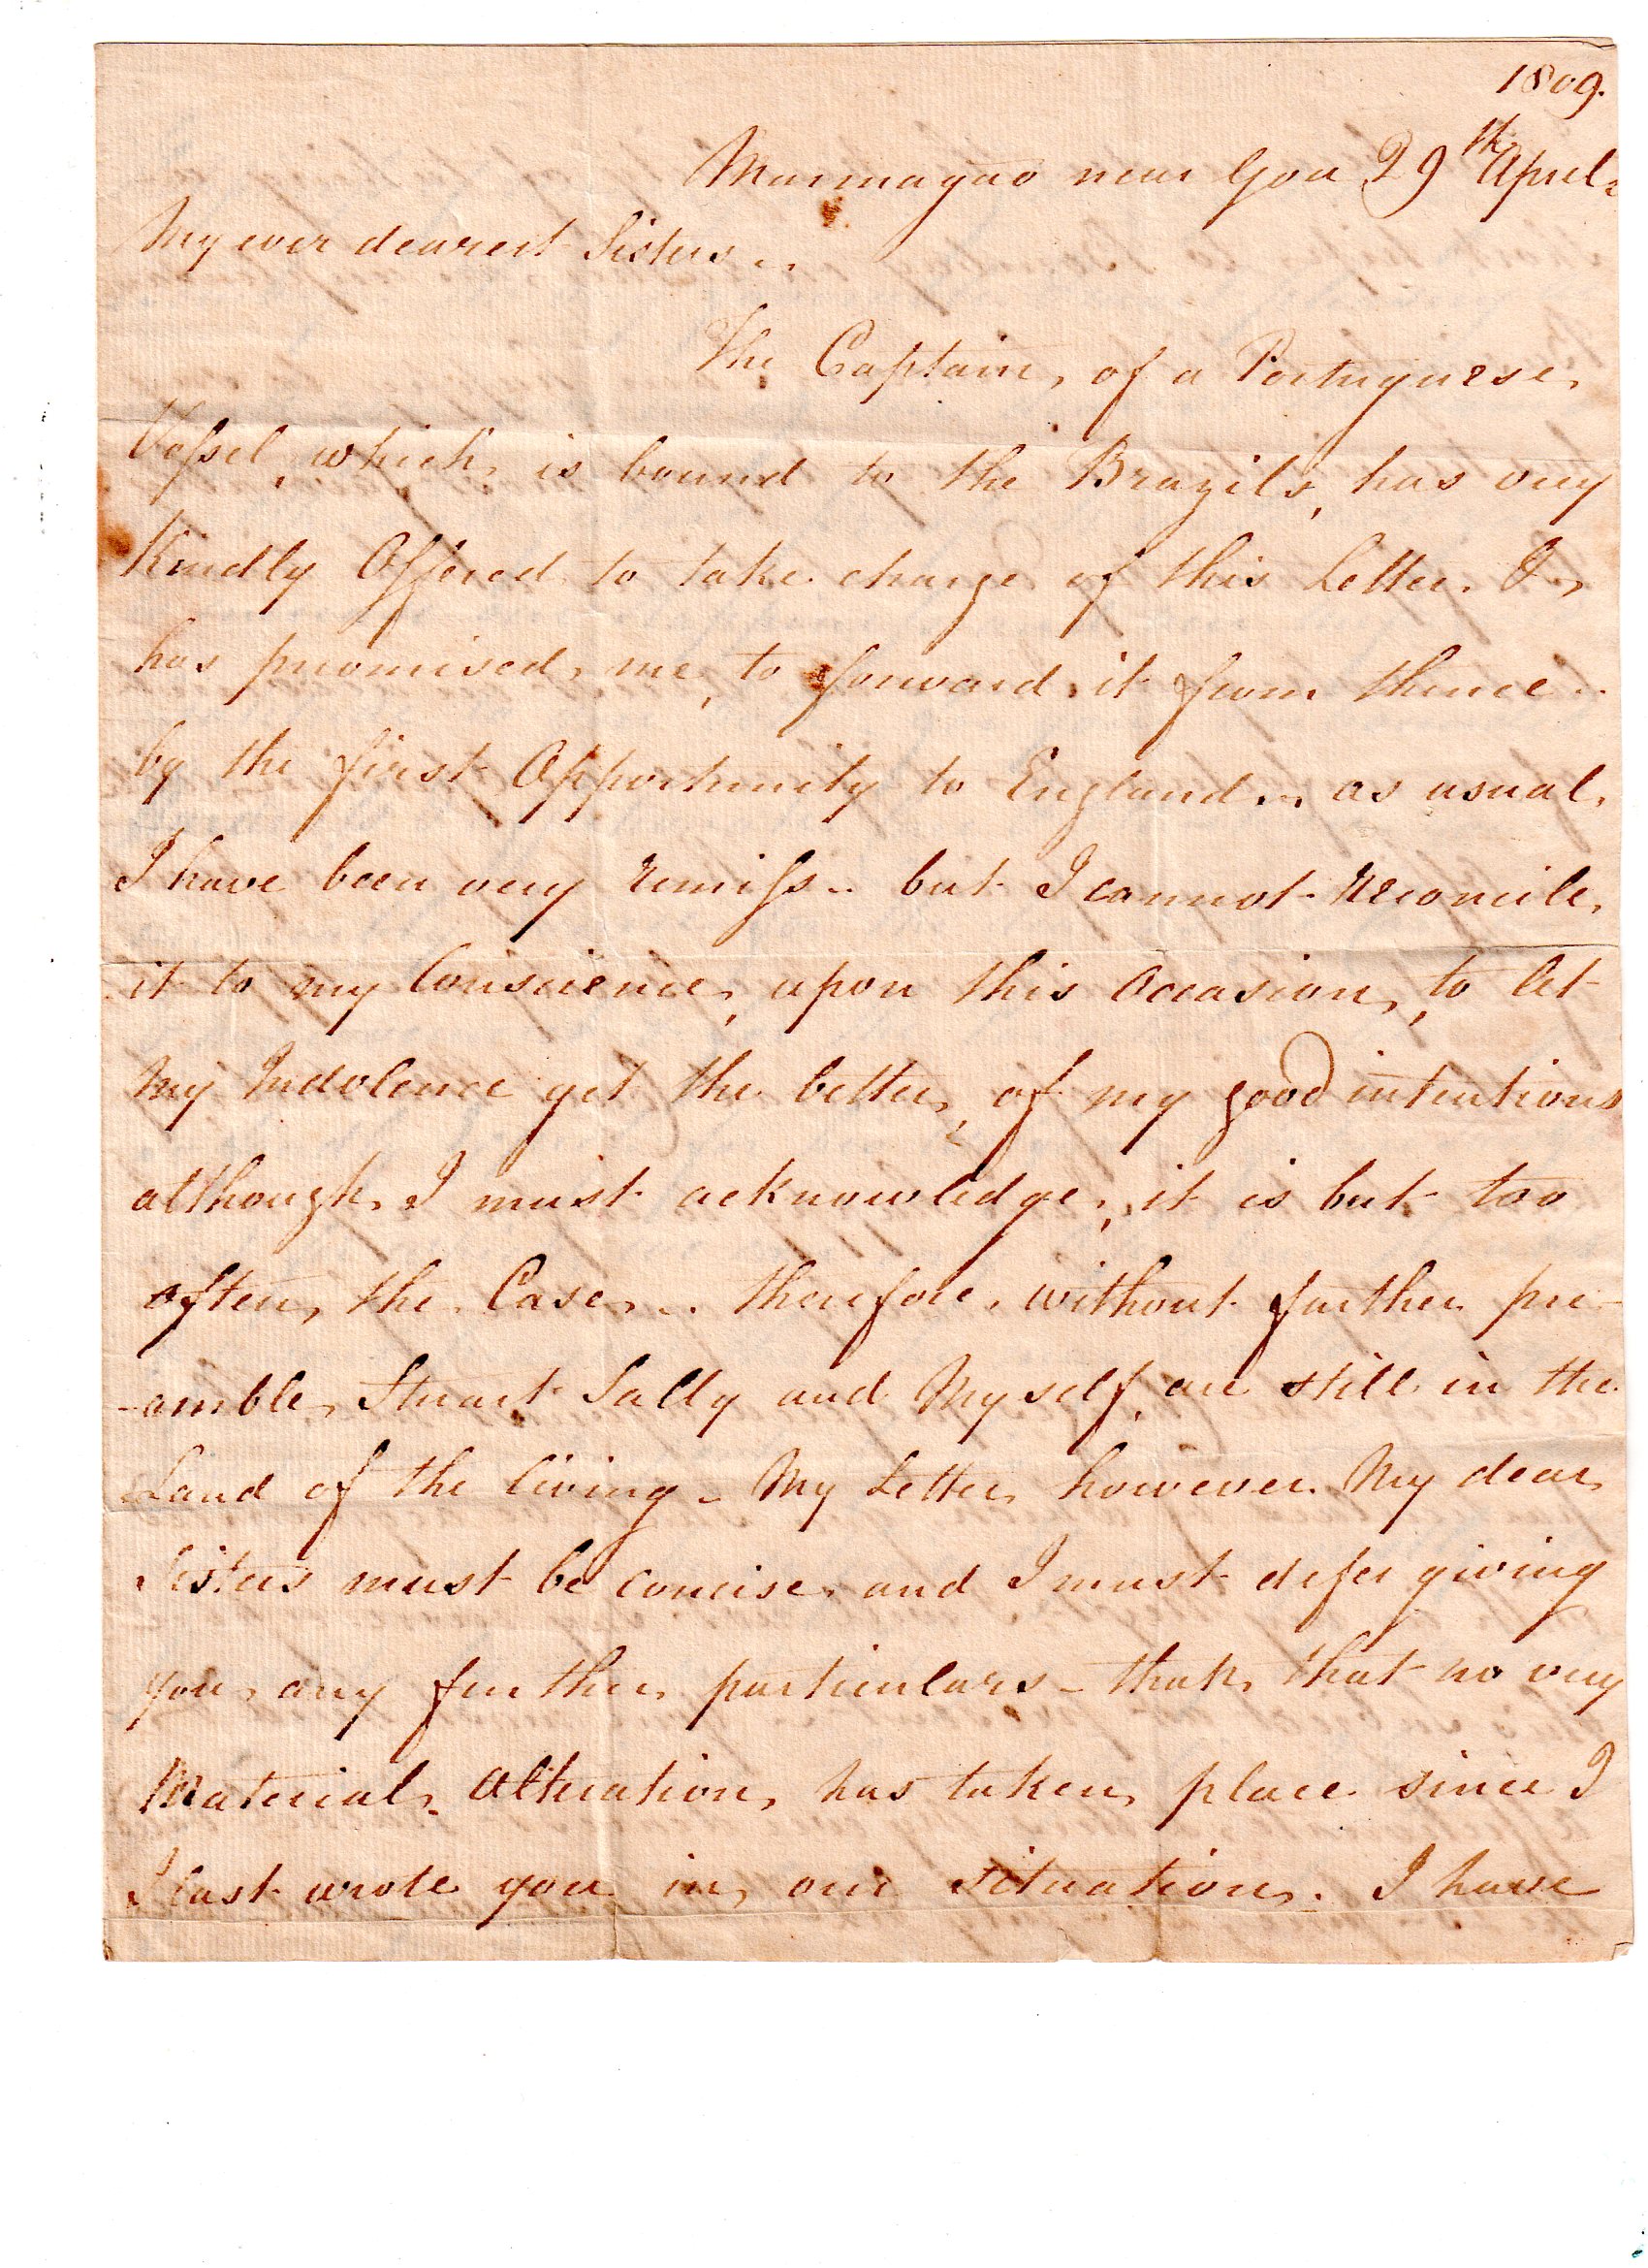 1809.
Murmagao near Goa 29th April.
My ever dearest Sisters..
The Captain, of a Portuguese,
Vessel, which, is bound to the Brazils, has very
Kindly Offered, to take charge of this Letter. &,
has promised, me, to forward, it from thence..
by the first Opportunity to England... as usual,
I have been very remiss.. but I cannot reconcile,
it to my Conscience, upon this Occasion, to let
My Indolence get the better, of my good intentions
although, I must acknowledge, it is but too
often, the Case... therefore, without further pre-
-amble, Stuart Sally and Myself, are still in the
Land of the living - My Letter, however. My dear,
Sisters must be concise, and I must defer giving
you, any further, particulars - than, that no very
Material, Alteration, has taken, place since I
I last wrote you in, our situation. I have